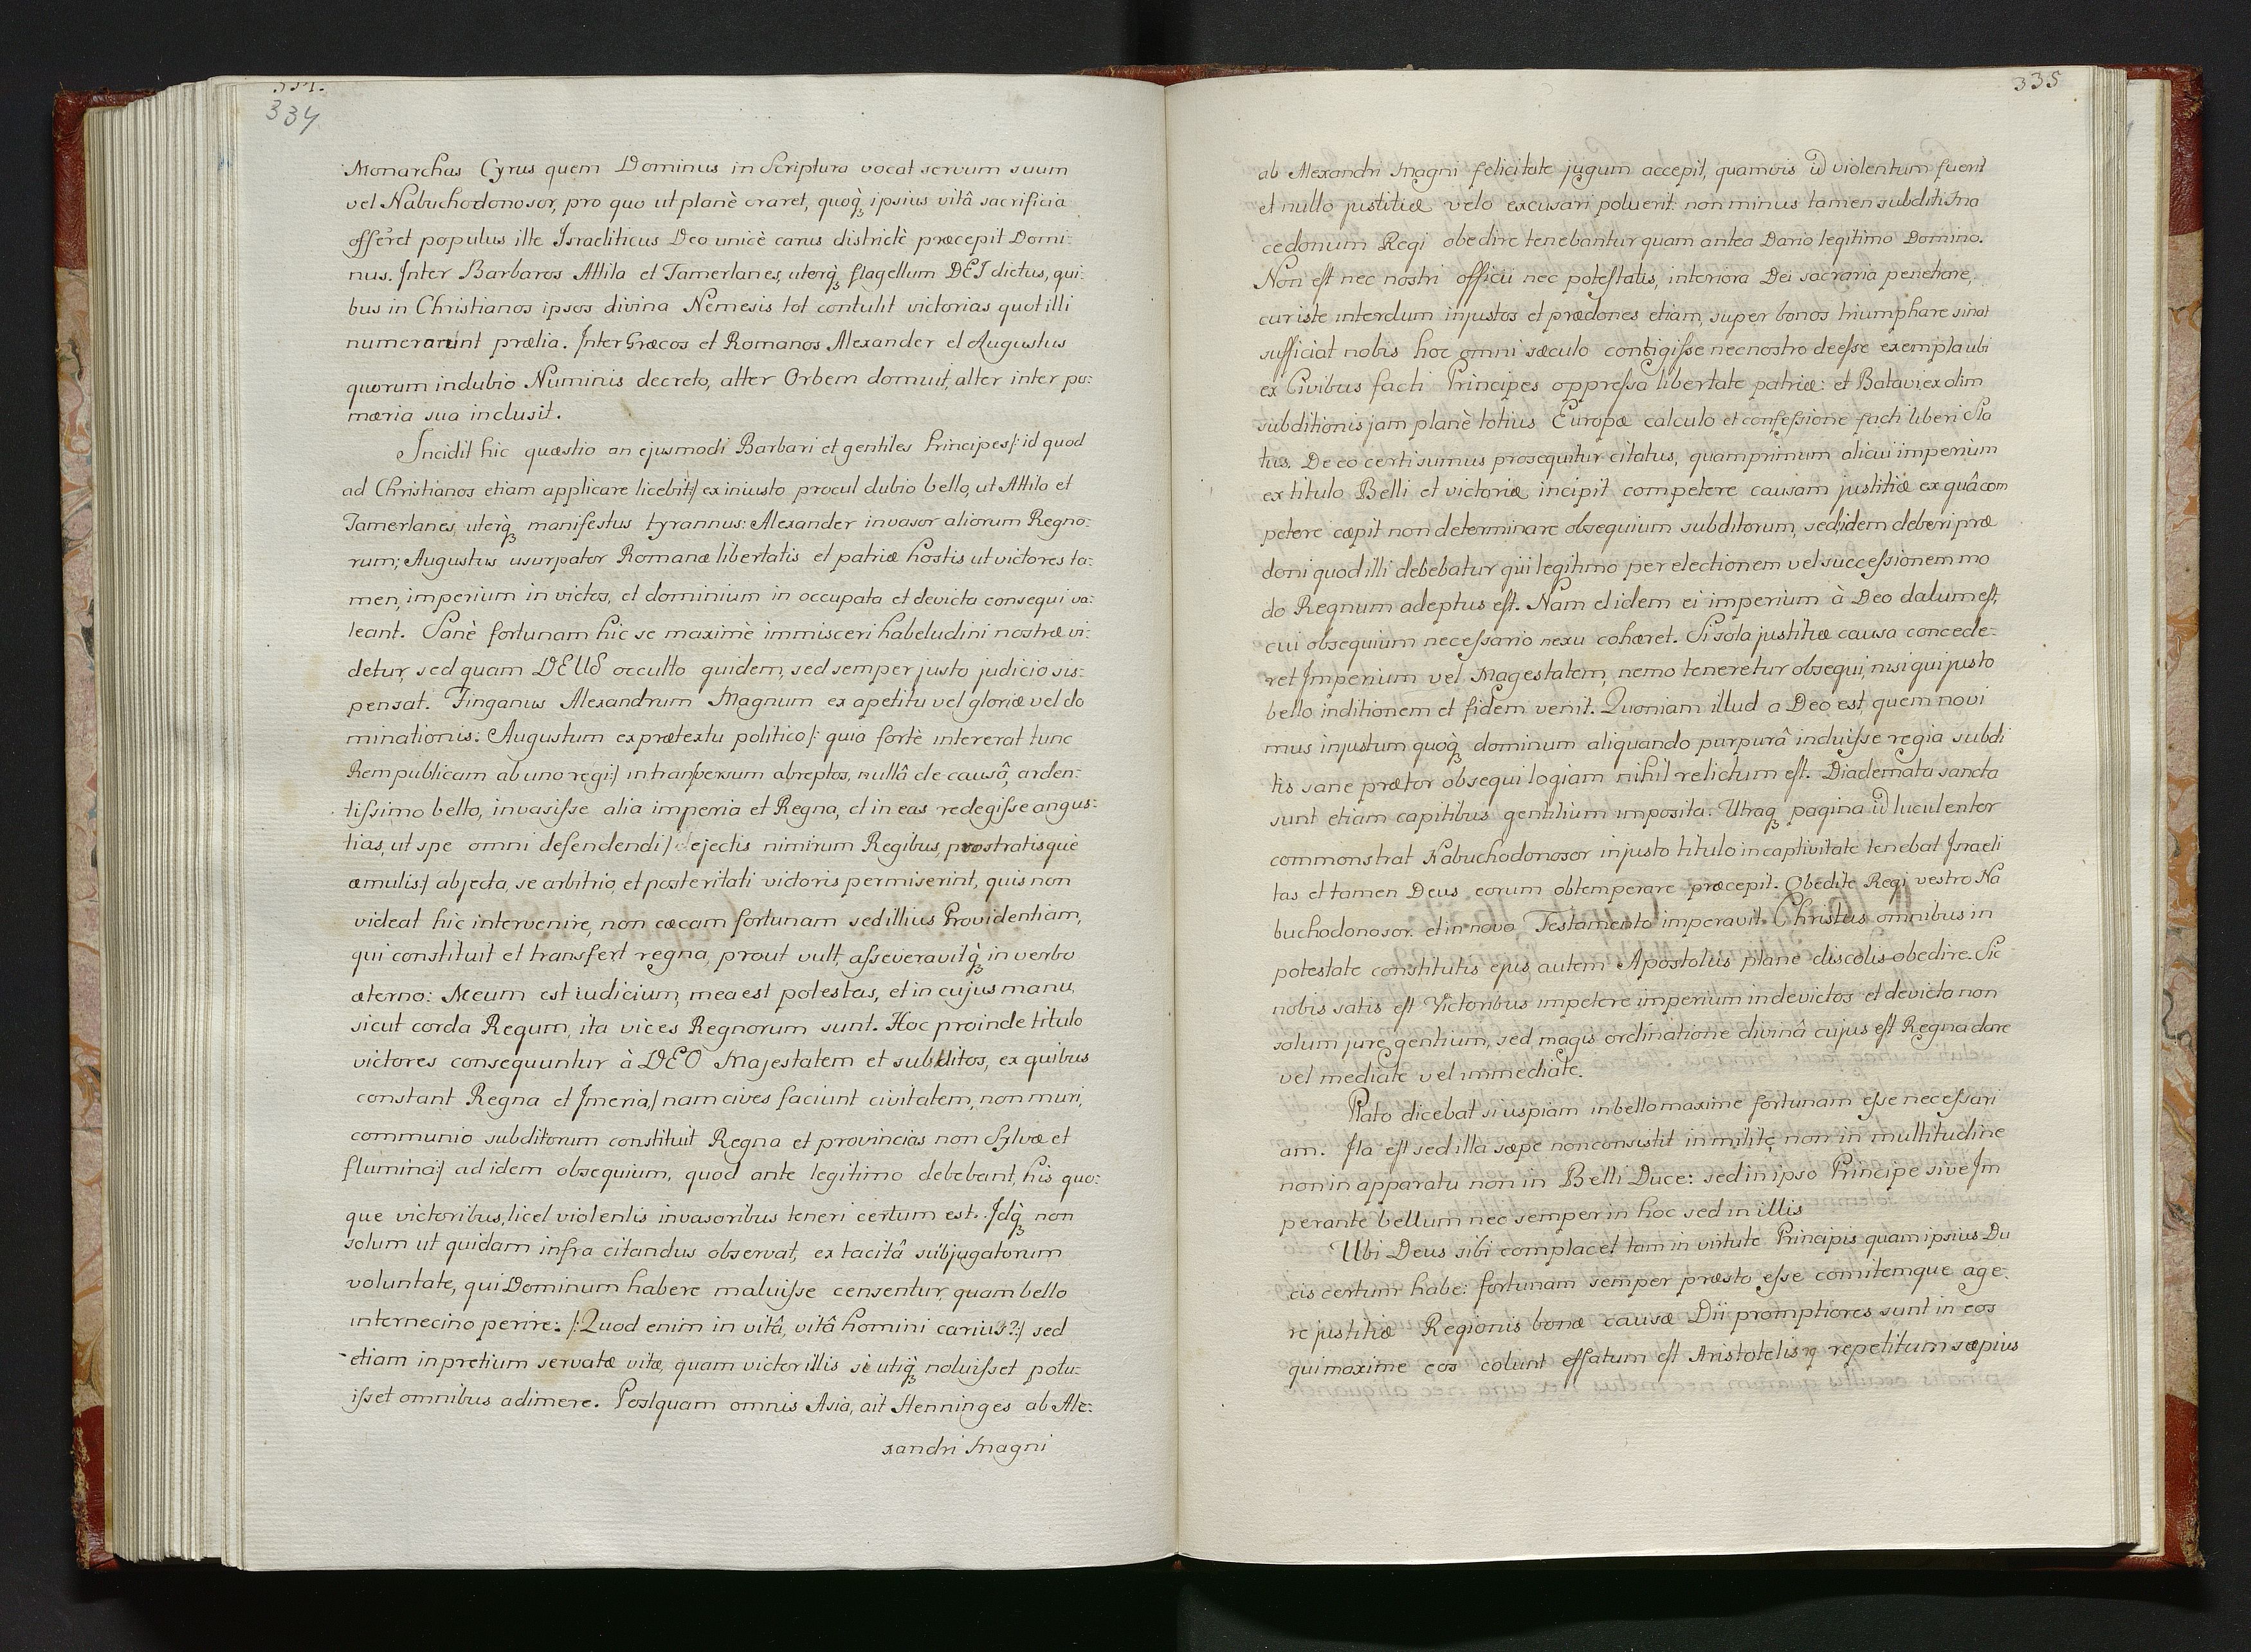 334
Monarchas Cyrus quem Dominus in Scriptura vocat servum suum
vel Nabuchodonosor, pro quo ut planè oraret, quoq̀ ipsius vitâ sacrificia
offeret populus ille Israeliticus Deo unicè carus districtè præcepit Domi:
nus. Inter Barbaros Attila et Tamerlanes, uterq̀ flagellum DEI dictus, qui:
bus in Christianos ipsos divina Nemesis tot contulit victorias quot illi
numerarunt prælia. Inter Græcos et Romanos Alexander et Augustus
quorum indubio Numinis decreto, alter Orbem domuit, alter inter po:
mæria sua inclusit.
Incidit hic quæstio an ejusmodi Barbari et gentiles Principes/: id quod
ad Christianos etiam applicare licebit:/ ex iniusto procul dubio bello, ut Attila et
Tamerlanes uterq̀ manifestus tyrannus: Alexander invasor aliorum Regno:
rum; Augustus usurpator Romanæ libertatis et patriæ hostis ut victores ta:
men, imperium in victos, et dominium in occupata et devicta consequi va:
leant. Sanè fortunam hic se maximè immisceri habeludini nostræ vi:
detur, sed quam DEUS occulto quidem, sed semper justo judicio sis:
pensat. Finganus Alexandrum Magnum ex apetitu vel gloriæ vel do
minationis: Augustum ex prætextu politico/: quia fortè intererat tunc
Rempublicam ab uno regi:/ in transversum abreptos, nullâ de causâ, arden:
tissimo bello, invasisse alia imperia et Regna, et in eas redegisse angus:
tias, ut spe omni defendendi/ dejectis nimirum Regibus, prostratisquè
æmulis:/ abjecta, se arbitrio, et posteritati victoris permiserint, quis non
videat hic intervenire, non cæcam fortunam sed illius Providentiam,
qui constituit et transfert regna, prout vult, asseveravitq̀ in verbo
æterno: Meum est iudicium, mea est potestas, et in cujus manu,
sicut corda Regum, ita vices Regnorum sunt. Hoc proinde titulo
victores consequuntur à DEO Majestatem et subditos, ex quibus
constant Regna et Imeria,/ nam cives faciunt civitatem, non muri,
communio subditorum constituit Regna et provincias non Sylvæ et
flumina:/ ad idem obsequium, quod ante legitimo debebant, his quo:
que victoribus, licet violentis invasoribus teneri certum est. Idq̀ non
solum ut quidam infra citandus observat, ex tacitâ subjugatorum
voluntate, qui Dominum habere maluisse censentur, quam bello
internecino perire: /: Quod enim in vitâ, vitâ homini carius?:/ sed
etiam in pretium servatæ vitæ, quam victor illis si utiq̀ noluisset potu:
isset omnibus adimere. Postquam omnis Asia, ait Henninges ab Ale:
xandri Magni
335
ab Alexandri Magni felicitate jugum accepit, quamvis id violentum fuerit
et nullo justitiæ velo excusari poluerit: non minus tamen subditi Ma
cedonum Regi obedire tenebantur quam antea Dario legitimo Domino.
Non est nec nostri officii nec potestatis, interiora Dei sacraria penetrare,
cur iste interdum injustos et prædones etiam, super bonos triumphare sinat
sufficiat nobis hoc omni sæculo contigisse nec nostro deesse exempla ubi
ex Civibus facti Principes oppressa libertate patriæ: et Batavi ex olim
subditionis jam planè totius Europæ calculo et confessione facti liberi Sta
tus. De eo certi sumus prosequitur citatus, quamprimum alicui imperium
ex titulo Belli et victoriæ incipit competere causam justitiæ ex quâ com
petere cæpit non determinare obsequium subditorum, sed idem deberi præ
doni quod illi debebatur qui legitimo per electionem vel successionem mo
do Regnum adeptus est. Nam et idem ei imperium à Deo datum est,
cui obsequium necessario nexu cohæret. Si sola justitiæ causa concede:
ret Imperium vel Magestatem, nemo teneretur obsequi, nisi qui justo
bello inditionem et fidem venit. Quoniam illud a Deo est quem novi
mus injustum quoq̀ dominum aliquando purpurâ induisse regia subdi
tis sane prætor obsequi logiam nihil relictum est. Diademata sancta
sunt etiam capitibus gentilium imposita. Utraq̀ pagina id luculenter
commonstrat Nabuchodonosor injusto titulo in captivitate tenebat Israeli
tas et tamen Deus eorum obtemperare præcepit. Obedite Regi vestro Na
buchodonosor. et in novo Testamento imperavit. Christus omnibus in
potestate constitutis ejus autem Apostolus plane discolis obedire. Sic
nobis satis est Victoribus impetere imperium in devictos et devicta non
solum jure gentium, sed magis ordinatione divinâ cujus est Regna dare
vel mediate vel immediate.
Plato dicebat si uspiam in bello maxime fortunam esse necessari
am. Ita est sed illa sæpe non consistit in milite, non in multitudine
non in apparatu non in Belli Duce: sed in ipso Principe sive Im
perante bellum nec semper in hoc sed in illis
Ubi Deus sibi complacet tam in virtute Principis quam ipsius Du
cis certum habe: fortunam semper præsto esse comitemque age:
re justitiæ Regionis bonæ causæ Dii promptiores sunt in eos
qui maxime eos colunt effatum est Aristotelis repetitum sæpius